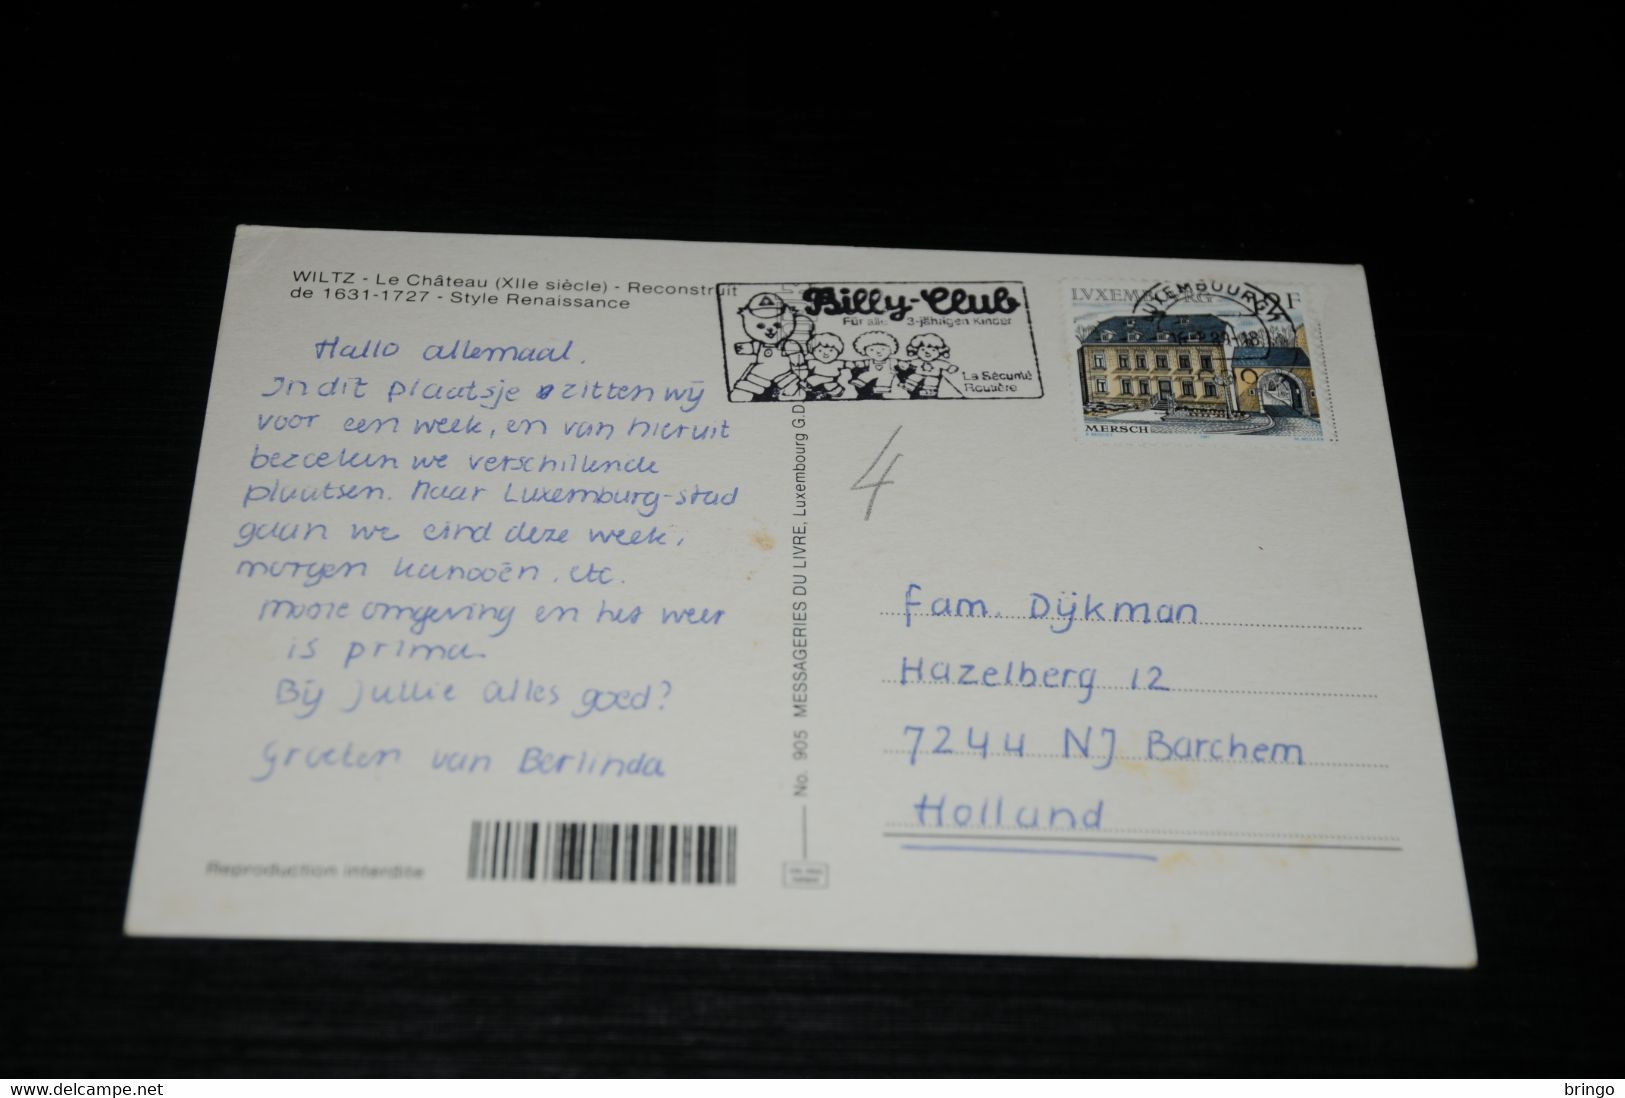 WILTZ - Le Château (XIIe siècle) - Reconstruit
de 1631-1727 - Style Renaissance
Hallo allemaal,
In dit plaatsje zitten wij
voor een week, en van hieruit
bezoeken we verschillende
plaatsen. Naar Luxemburg-stad
gaan we eind deze week,
morgen kanooën, etc.
Mooie omgeving en het weer
is prima.
Bij jullie alles goed?
Groeten van Berlinda
Reproduction interdite
No. 905 MESSAGERIES DU LIVRE, Luxembourg G.D.
Billy-Club
Für alle 3-jährigen Kinder
La Sécurité
Routière
LVXEMBOURG
MERSCH
LUXEMBOURG
4
Fam. Dijkman
Hazelberg 12
7244 NJ Barchem
Holland
bringo